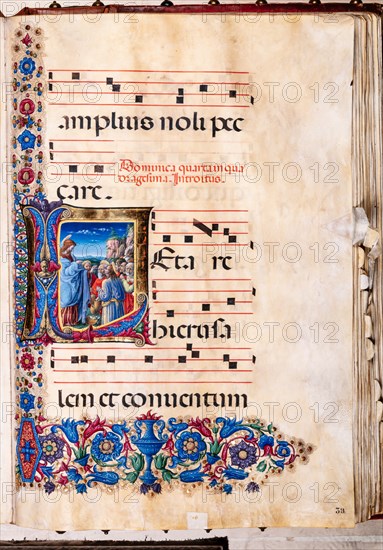 amplius noli pec
Dominica quarta in qua
dragesima. Introitus.
care.
Leta re
hierusa
lem et conuentum